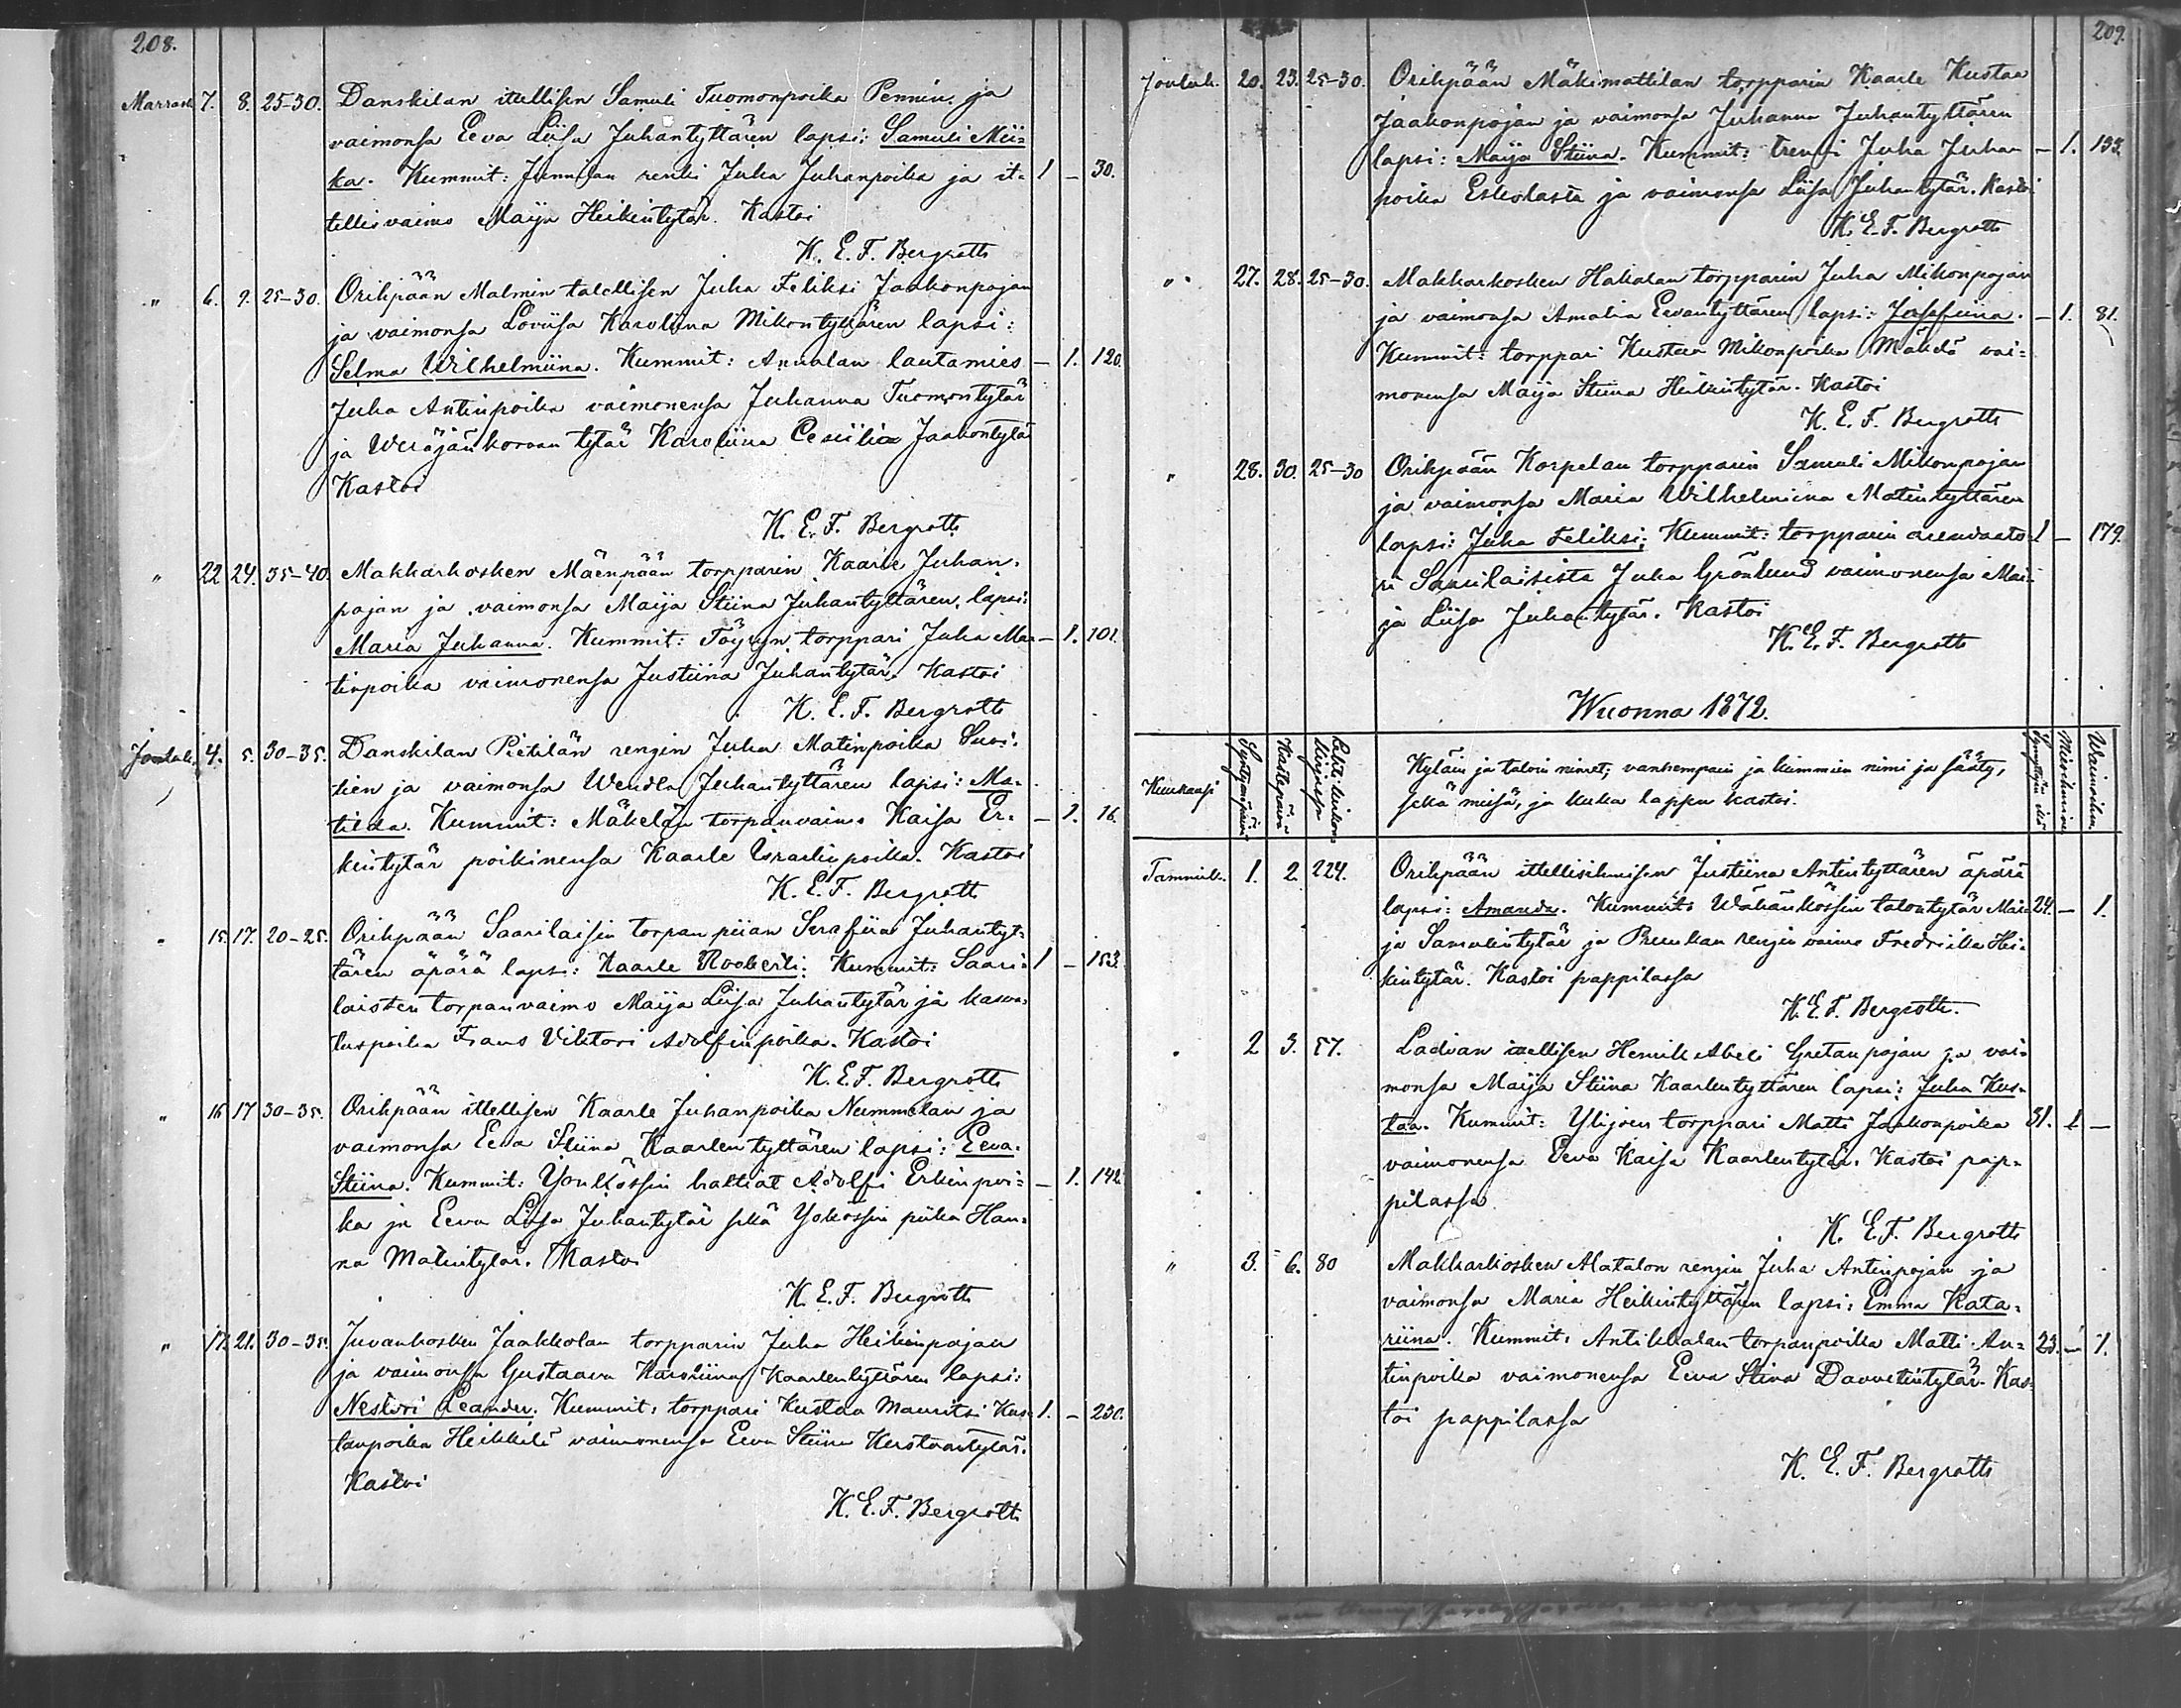 208.
Marrask. 7. 8. 25-30. Danskilan itellisen Samuli Tuomonpoika Pennin ja
vaimonsa Eeva Liisa Juhantyttären lapsi: Samuli Mii-
ka. Kummit: Junnilan renki Juha Juhanpoika ja it- 1 – 30.
tellisvaimo Maija Heikintytär. Kastoi
K. E. F. Bergroth
" 6. 9. 25-30. Orihpään Malmin talellisen Juha Feliksi Jaakonpojan
ja vaimonsa Loviisa Karoliina Mikontyttären lapsi:
Selma Wilhelmiina. Kummit: Annalan lautamies – 1. 120.
Juha Antinpoika vaimonensa Juhanna Tuomontytär
ja Weräjänkorvan tytär Karoliina Cesiilia Jaakontytä
Kastoi
K. E. F. Bergroth
" 22 24. 35-40. Makkarkosken Mäenpään torpparin Kaarle Juhan-
pojan ja vaimonsa Maija Stiina Juhantyttären lapsi:
Maria Juhanna. Kummit: Töyryn torppari Juha Ma- – 1. 101.
tinpoika vaimonensa Justiina Juhantytär. Kastoi
K. E. F. Bergroth
Jouluk. 4. 5. 30-35. Danskilan Pietilän rengin Juha Matinpoika Suvi-
sien ja vaimonsa Wendla Juhantyttären lapsi: Ma-
tilda. Kummit: Mäkelän torpanvaimo Kaisa Er- – 1. 16.
kintytär poikinensa Kaarle Israelinpoika. Kastoi
K. E. F. Bergroth
" 15. 17. 20-25. Orihpään Saarilaisin torpan piian Serafiia Juhantyt-
tären äpärä lapsi: Kaarle Rooberti. Kummit: Saari- 1 – 153.
laisten torpanvaimo Maija Liisa Juhantytär ja kasva-
tuspoika Frans Viktori Adolfinpoika. Kastoi
K. E. F. Bergroth
" 16 17 30-35. Orihpään ittellisen Kaarle Juhanpoika Nummelan ja
vaimonsa Eeva Stiina Kaarlentyttären lapsi: Eeva-
Stiina. Kummit: Ylikössin haltiat Adolfi Erkinpoi- – 1. 142.
ka ja Eeva Liisa Juhantytär sekä Yökössin piika Han-
na Matintytär. Kastoi
K. E. F. Bergroth
" 17. 21. 30-35. Juvankosken Jaakkolan torpparin Juha Heikinpojan
ja vaimonsa Gustaava Karoliina Kaarlentyttären lapsi:
Nestori Leander. Kummit: torppari Kustaa Mauritsi Kus- 1. – 230.
taanpoika Heikkilä vaimonensa Eeva Stiina Kustaantytär.
Kastoi
K. E. F. Bergroth
209.
Jouluk. 20. 23. 25-30. Orihpään Mäkimattilan torpparin Kaarle Kustaa
Jaakonpojan ja vaimonsa Juhanna Juhantyttären
lapsi: Maija Stiina. Kummit: trengi Juha Juhan – 1. 133.
poika Eskolasta ja vaimonsa Liisa Juhantytär. Kastoi
K. E. F. Bergroth
" 27. 28. 25-30. Makkarkosken Hakalan torpparin Juha Mikonpojan
ja vaimonsa Amalia Eevantyttären lapsi: Joseffiina. – 1. 81.
Kummit: torppari Kustaa Mikonpoika Mäkilä vai-
monensa Maija Stiina Heikintytär. Kastoi
K. E. F. Bergroth
" 28. 30. 25-30 Orihpään Korpelan torpparin Samuli Mikonpojan
ja vaimonsa Maria Wilhelmiina Matintyttären
lapsi: Juha Feliksi; Kummit: torpparin arendaato- 1 – 179.
ri Saarilaisista Juha Grönlund vaimonensa Mai-
ja Liisa Juhantytär. Kastoi
K. E. F. Bergroth
Wuonna 1872.
Kuukausi Syntymäpäivä Kastepäivä Kyläin ja taloin nimet; vanhempain ja kummien nimi ja sääty, Synnyttäjän ikä Miehenpuoli Waimonpuoli
sekä missä, ja kuka lapsen kastoi.
Tammik. 1. 2. 224. Orihpään ittellisihmisen Justiina Antintyttären äpärä
lapsi: Amanda. Kummit: Wähänkössin talontytär Mai- 24. – 1.
ja Samulintytär ja Prunkan rengin vaimo Fredriika Hei-
kintytär. Kastoi pappilassa
K. E. F. Bergroth.
" 2 3. 57. Ladvan itellisen Henrik Abeli Gretanpojan ja vai-
monsa Maija Stiina Kaarlentyttären lapsi: Juha Kus-
taa. Kummit: Ylijoen torppari Matti Jaakonpoika 31. 1 –
vaimonensa Eeva Kaisa Kaarlentytär. Kastoi pap-
pilassa
K. E. F. Bergroth
" 3. 6. 80 Makkarkosken Alatalon rengin Juha Antinpojan ja
vaimonsa Maria Heikintyttären lapsi: Emma Kata-
riina. Kummit: Antikkalan torpanpoika Matti An- 23. – 1.
tinpoika vaimonensa Eeva Stina Daavetintytär. Kas-
toi pappilassa
K. E. F. Bergroth